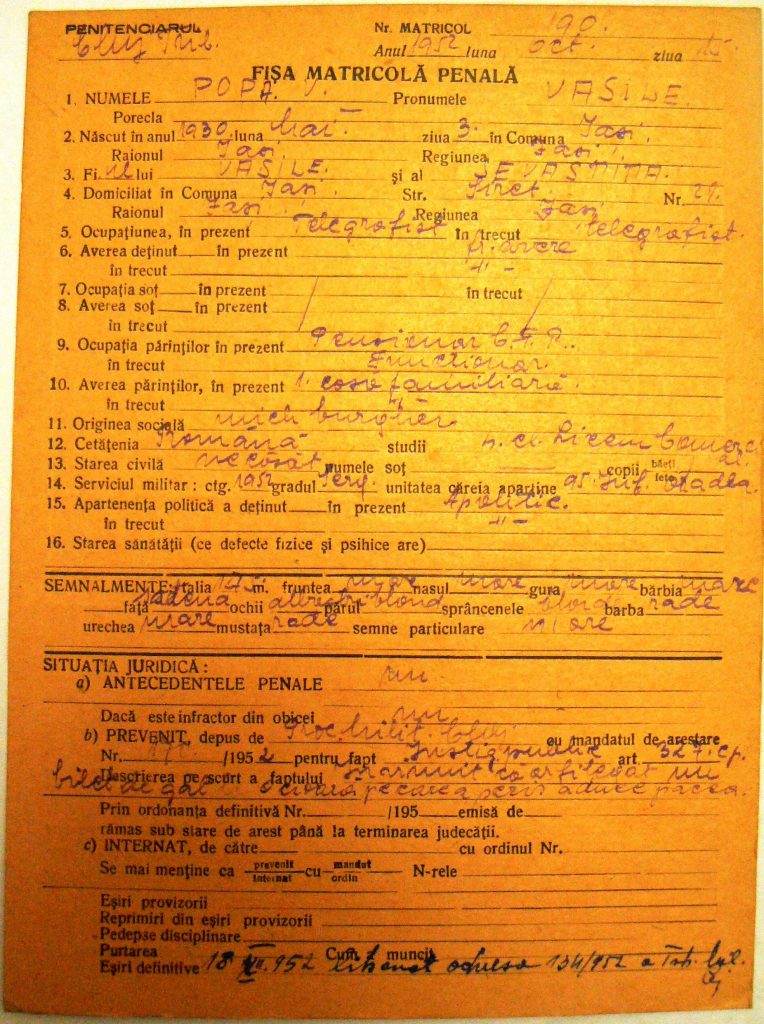 PENITENCIARUL Nr. MATRICOL 190.
Cluj Trib. Anul 1952 luna Oct. ziua 15
FIŞA MATRICOLĂ PENALĂ
1. NUMELE POPA V. Pronumele VASILE.
Porecla
2. Născut în anul 1930 luna Mai ziua 3. în Comuna Iaşi.
Raionul Iaşi. Regiunea Iaşi.
3. Fiul lui VASILE. şi al SEVASTIŢA.
4. Domiciliat în Comuna Iaşi. Str. Siret. Nr. 29.
Raionul Iaşi. Regiunea Iaşi
5. Ocupaţiunea, în prezent Telegrafist în trecut telegrafist.
6. Averea deţinut în prezent avere
în trecut -"-
7. Ocupaţia soţ în prezent în trecut
8. Averea soţ în prezent
în trecut
9. Ocupaţia părinţilor în prezent Pensionar C.F.R.
în trecut Funcţionar.
10. Averea părinţilor, în prezent 1. casă familiară.
în trecut -"-
11. Originea socială mich burgher
12. Cetăţenia Română studii cl. Liceu Comerc
13. Starea civilă necăsăt numele soţ copii băeţi fete
14. Serviciul militar: ctg. 1952 gradul Serg. unitatea căreia aparţine 95. Inf. Oradea.
15. Apartenenţa politică a deţinut în prezent Apolitic.
în trecut -"-
16. Starea sănătăţii (ce defecte fizice şi psihice are)
SEMNALMENTE: talia 175 m. fruntea mare nasul mare gura mare bărbia mare
faţă ochii albaştri părul blond sprâncenele blond barba rade
urechea mare mustaţa rade semne particulare n'are
SITUAŢIA JURIDICĂ:
a) ANTECEDENTELE PENALE nu
Dacă este infractor din obicei nu
b) PREVENIT, depus de Proc. Milit. Cluj cu mandatul de arestare
Nr. /1952 pentru fapt Instig. publică art. 327. c.p.
Descrierea pe scurt a faptului
bilet de pacea.
Prin ordonanţa definitivă Nr. /195 emisă de
rămas sub stare de arest până la terminarea judecăţii.
c) INTERNAT, de către cu ordinul Nr.
Se mai menţine ca prevenit internat cu mandat ordin N-rele
Eşiri provizorii
Reprimiri din eşiri provizorii
Pedepse disciplinare
Purtarea Cum munceşte
Eşiri definitive 18 XII. 952 liberat adresa 134/952 a Trib. Mil.
Cj